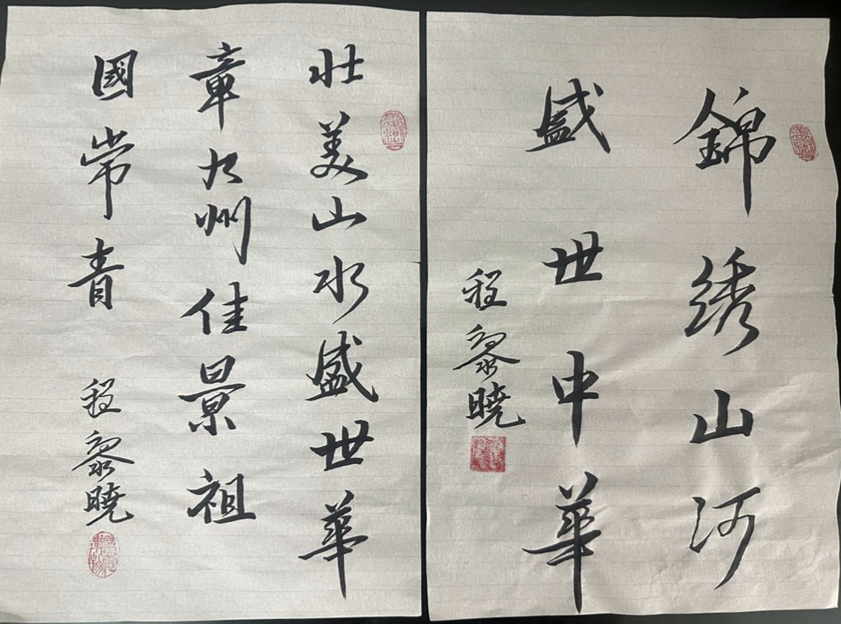 錦绣山河
盛世中華
程黎曉
壮美山水盛世華
章九州佳景祖
國常青
程黎曉